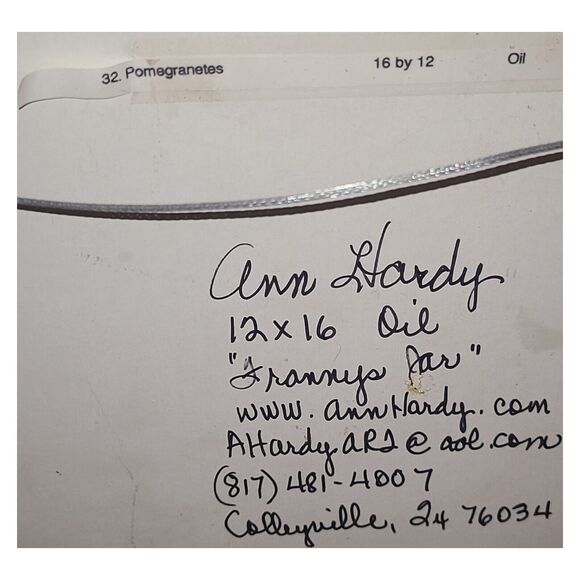 32. Pomegranetes 16 by 12 Oil
Ann Hardy
12 x 16 Oil
"Frannys Jar"
www.annHardy.com
AHardyART@aol.com
(817) 481-4007
Colleyville, TX 76034